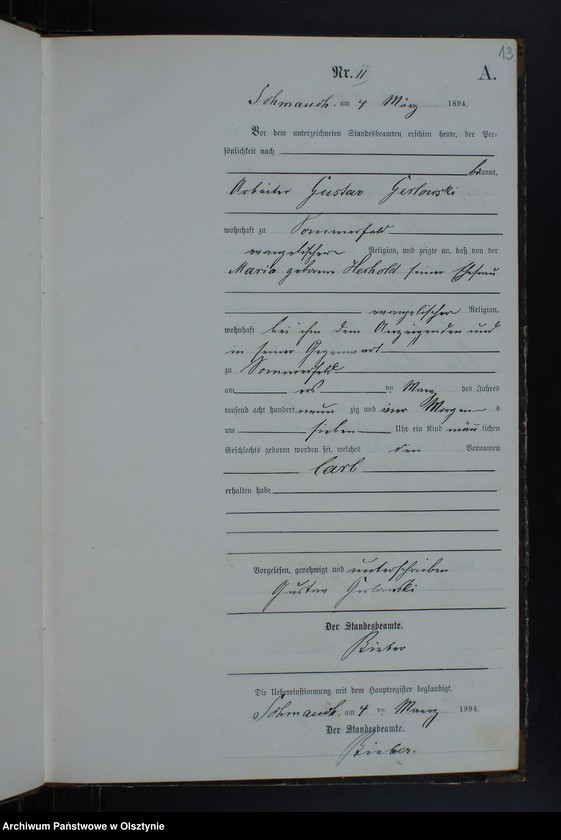 13
Nr. 11
A.
Schmauch. am 4 März 1894.
Vor dem unterzeneten Standesbeamten erschien heute, der Per-
sönlichkeit nach
bekannt,
Arbeiter Gustav Gerlowski
wohnhaft zu Sommerfeld
evangelischer Religion, und zeigte an, daß von der
Maria geborene Herhold seiner Ehefrau
evangelischer Religion,
wohnhaft bei ihm dem Anzeigenden und
in seiner Gegenwart
zu Sommerfeld
am ten März des Jahres
tausend acht hundert neun zig und vier Morgens
um sieben Uhr ein Kind männlichen
Geschlechts geboren worden sei, welches den Vornamen
Carl
erhalten habe
Vorgelesen, genehmigt und unterschrieben
Gustav Gerlowski
Der Standesbeamte.
Bieber
Die Uebereinstimmung mit dem Hauptregister beglaubigt.
Schmauch. am 4 ten Maerz 1894.
Der Standesbeamte.
Bieber.
Archiwum Państwowe w Olsztynie